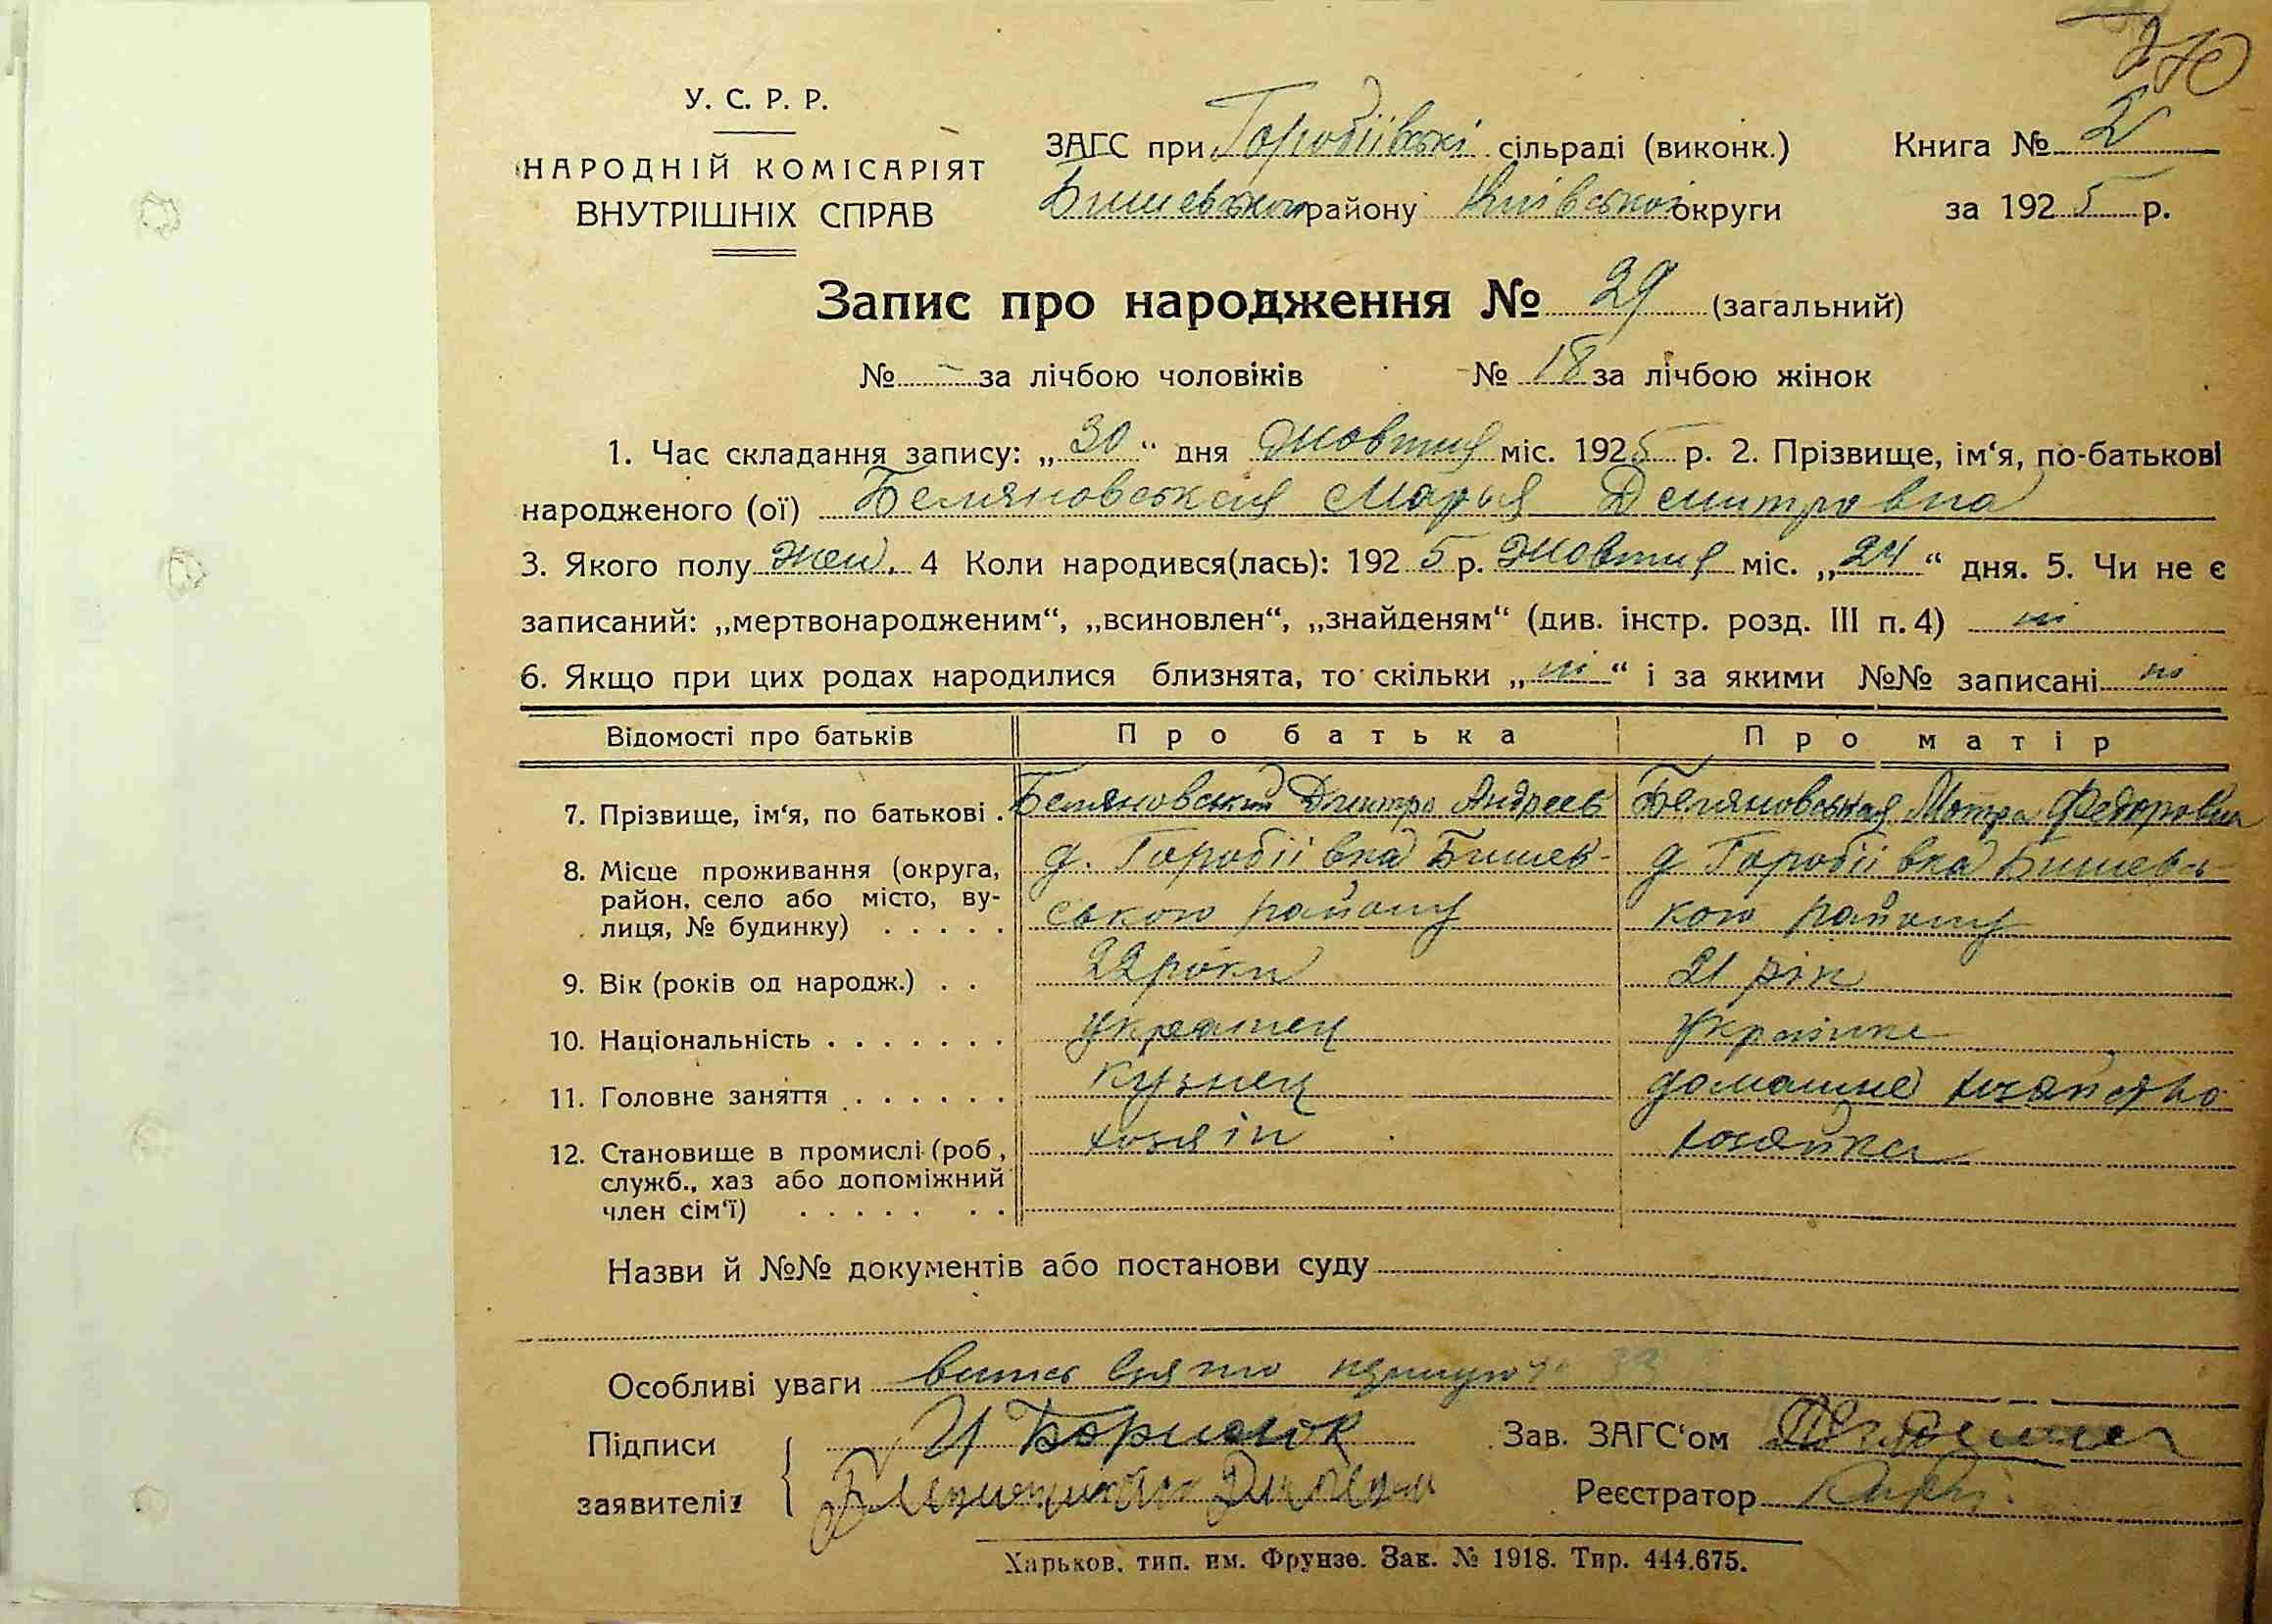 270
У. С. Р. Р.
НАРОДНІЙ КОМІСАРІЯТ
ВНУТРІШНІХ СПРАВ
ЗАГС при Горобіївскі сільраді (виконк.)
Бишевського району Київської округи
Книга № I
за 1925 р.
Запис про народження № 29 (загальний)
№ - за лічбою чоловіків № 18 за лічбою жінок
1. Час складання запису: „30“ дня Жовтня міс. 1925 р. 2. Прізвище, ім‘я, по-батькові
народженого (ої) Беляновська Марья Дмитровна
3. Якого полу жен. 4 Коли народився(лась): 1925 р. Жовтня міс. „24“ дня. 5. Чи не є
записаний: „мертвонародженим“, „всиновлен“, „знайденям“ (див. інстр. розд. III п. 4) ні
6. Якщо при цих родах народилися близнята, то скільки „ні“ і за якими №№ записані ні
Відомості про батьків Про батька Про матір
7. Прізвище, ім‘я, по батькові . Беляновський Дмитро Андреев Беляновська Мотра Федоровна
8. Місце проживання (округа, д. Горобіївка Бишев- д Горобіївка Бишевсь
район, село або місто, ву- ського району кого району
лиця, № будинку) . . . . .
9. Вік (років од народж.) . . 22 роки 21 рік
10. Національність . . . . . . . украинец Українка
11. Головне заняття . . . . . . кузнец домашне хозяйство
12. Становище в промислі (роб, хозяін хозяйка
служб., хаз або допоміжний
член сім‘ї) . . . . . . .
Назви й №№ документів або постанови суду
Особливі уваги
Підписи И Борисюк Зав. ЗАГС‘ом
заявителів Реєстратор
Харьков, тип. им. Фрунзе. Зак. № 1918. Тир. 444.675.